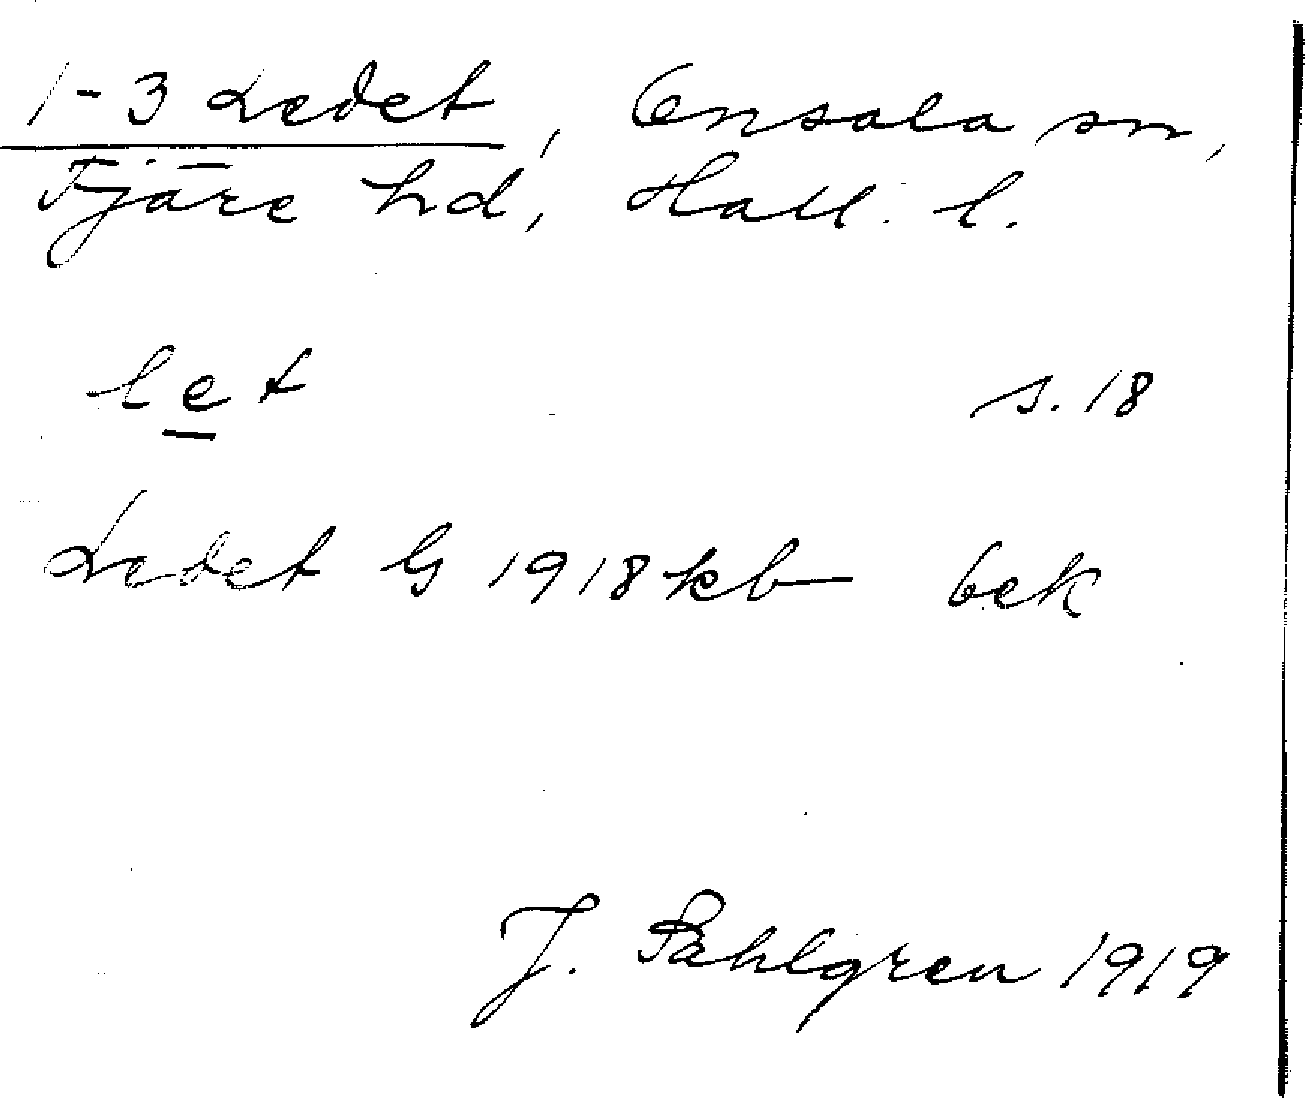 1-3 Ledet, Onsala sn,
Fjäre hd, Hall. l.
let s. 18
Ledet G 1918 kb bek
J. Sahlgren 1919